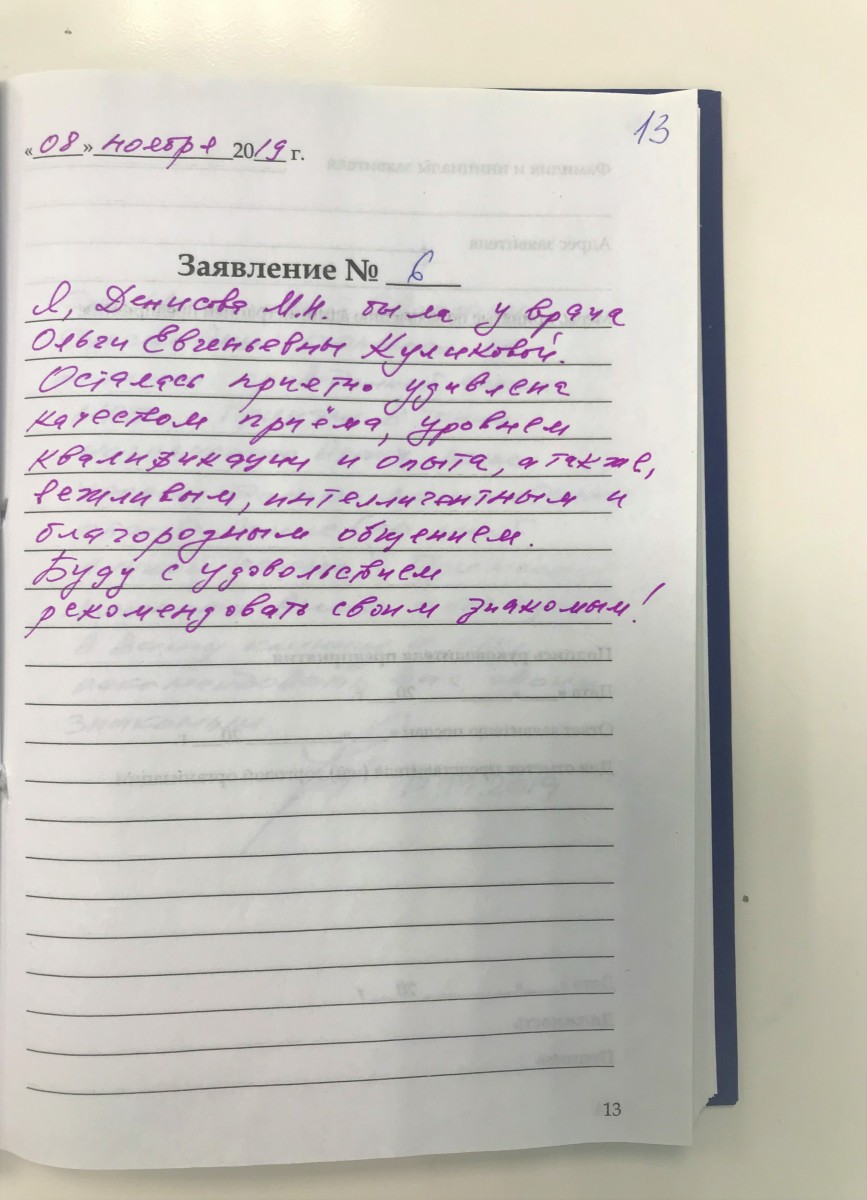 13
«08» ноября 2019 г.
Заявление № 6
Я, Денисова М.Н. была у врача
Ольги Евгеньевны Куликовой.
Осталась приятно удивлена
качеством приёма, уровнем
квалификации и опыта, а также,
вежливым, интеллигентным и
благородным общением.
Буду с удовольствием
рекомендовать своим знакомым!
13